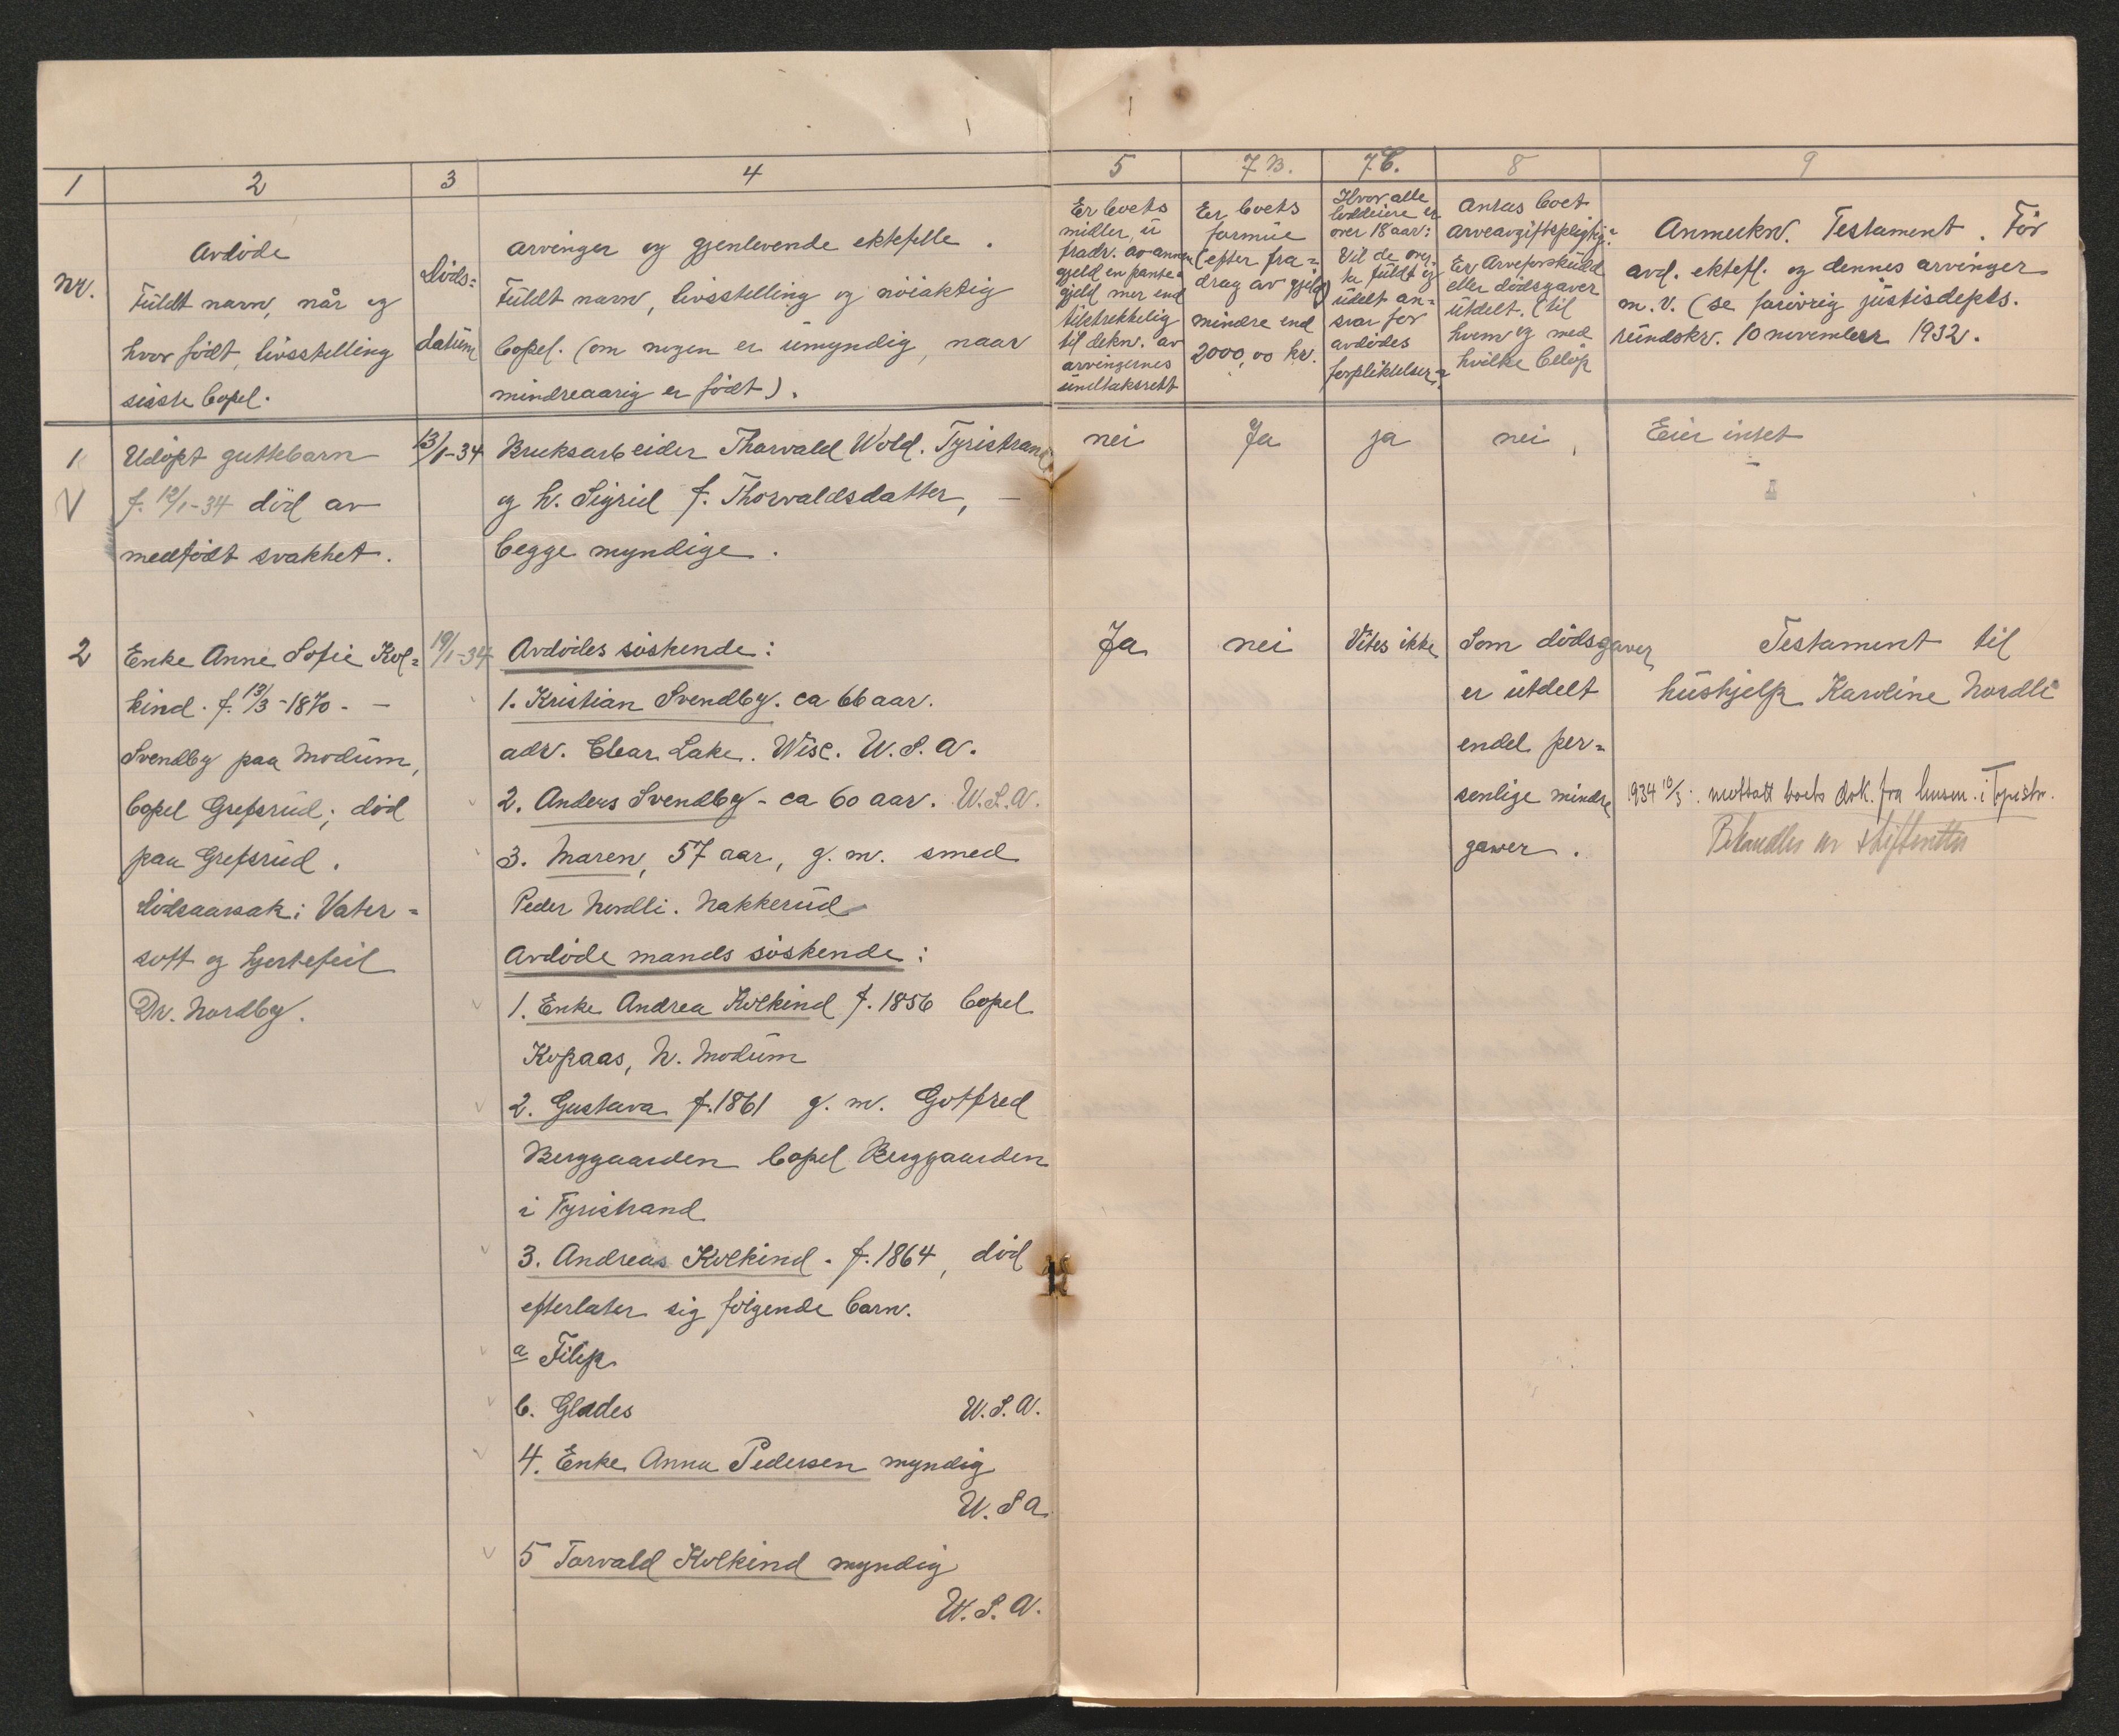 1 2 3 4 5 7B. 7C. 8 9
Nr.
Avdøde
Fuldt navn, når og
hvor født, livsstilling
sisste bopel.
Døds=
datum
Arvinger og gjenlevende ektefelle.
Fuldt navn, livsstilling og nøiaktig
bopel. (om nogen er umyndig, naar
mindreaarig er født).
Er boets
midler, u
fradr. av annen
gjeld en pante=
gjeld mer end
tilstrekkelig
til dekn. av
arvingernes
undtaksrett
Er boets
formue
(efter fra=
drag av gjeld)
mindre end
2000,00 kr.
Hvor alle
loddeiere er
over 18 aar:
Vil de over=
ta fuldt og
udelt an=
svar for
avdødes
forpliktelser?
Antas boet
arveavgiftspligtig?
Er Arveforskudd
eller dødsgaver
utdelt. (til
hvem og med
hvilke beløp
Anmerkn. Testament. Før
avd. ektefl. og dennes arvinger
m.v. (se forøvrig justisdepts.
rundskr. 10 november 1932.
1 Udøpt guttebarn 13/1-34 Bruksarbeider Thorvald Wold. Tyristrand nei Ja ja nei Eier intet
f. 12/1-34 død av og h. Sigrid f. Thorvaldsdatter,
medfødt svakhet. begge myndige.
2 Enke Anne Sofie Kol= 19/1-34 Avdødes søskende: Ja nei Vites ikke Som dødsgaver Testament til
kind. f. 13/3-1870 - 1. Kristian Svendby. ca 66 aar. er utdelt hushjelp Karoline Nordli
Svendby paa Modum, adr. Clear Lake. Wisc. U.S.A. endel per=
bopel Grefsrud; død 2. Anders Svendby - ca 60 aar. U.S.A. senlige mindre 1934 10/3. mottatt boets dok. fra lensm. i Tyristr.
paa Grefsrud. 3. Maren, 57 aar, g.m. smed gaver. Behandles av skifteretten
Dødsaarsak: Vater= Peder Nordli. Nakkerud
sott og hjertefeil Avdøde mands søskende:
Dr. Nordby. 1. Enke Andrea Kolkind f. 1856 bopel
Kopaas, N. Modum
2. Gustava f. 1861 g.m. Gotfred
Berggaarden bopel Berggaarden
i Tyristrand
3. Andreas Kolkind. f. 1864, død
efterlater sig følgende barn.
a Filip
b. Glades U.S.A.
4. Enke Anna Pedersen myndig
U.S.A.
5 Torvald Kolkind myndig
U.S.A.